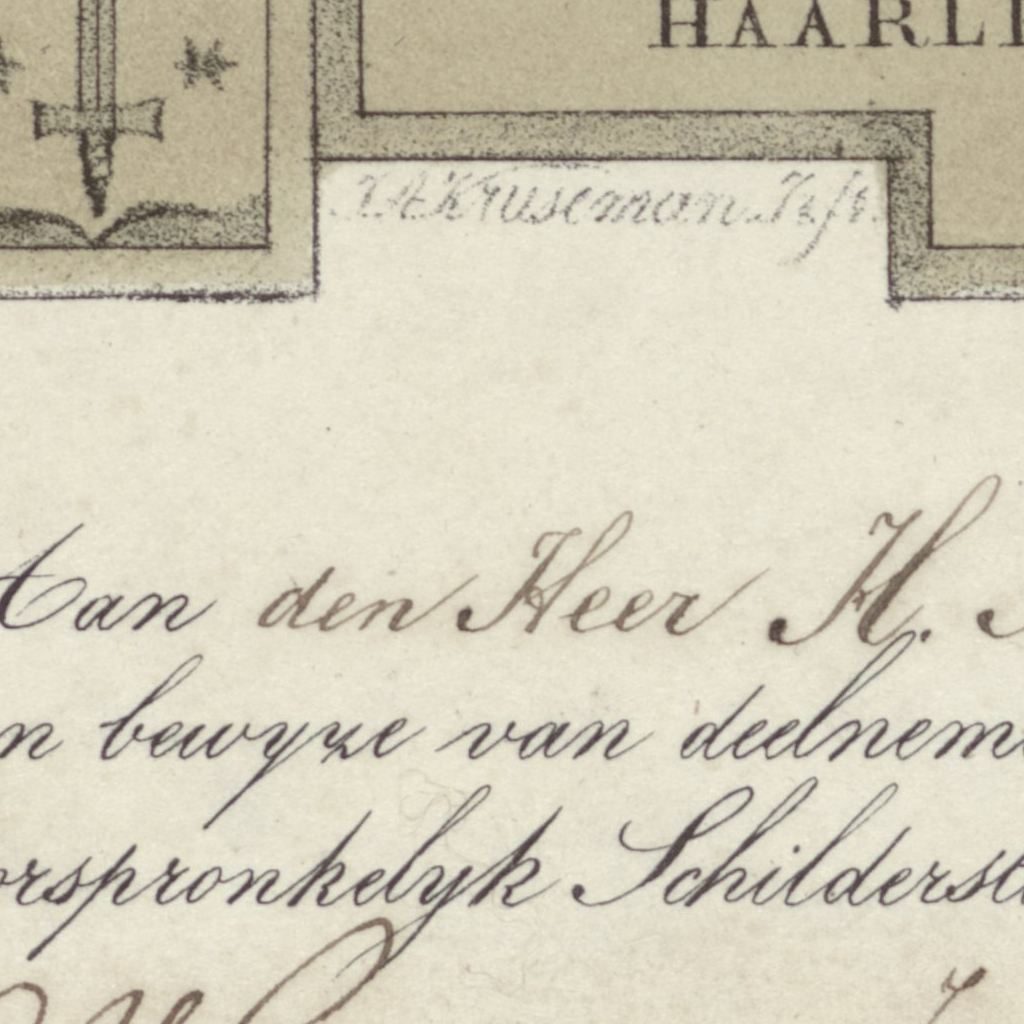 HAARL
Kruseman
Aan den Heer H.
n bewyze van deelnem
orspronkelyk Schilderst